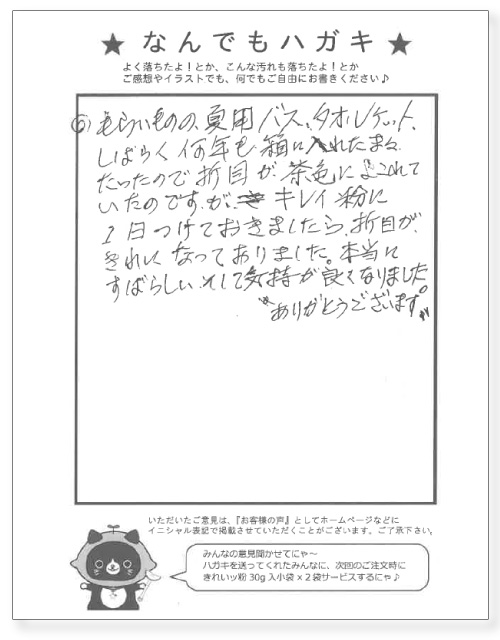 ★ なんでもハガキ ★
よく落ちたよ！とか、こんな汚れも落ちたよ！とか
ご感想やイラストでも、何でもご自由にお書きください♪
⑥ もらいものの、夏用バス、タオルケット、
しばらく何年も箱に入れたまま
だったので折目が茶色によごれて
いたのですが、キレイ粉に
1日つけておきましたら、折目が、
きれいになっておりました。本当に
すばらしい、そして気持が良くなりました。
〝ありがとうございます。〟
いただいたご意見は、『お客様の声』としてホームページなどに
イニシャル表記で掲載させていただくことがございます。ご了承下さい。
みんなの意見聞かせてにゃ～
ハガキを送ってくれたみんなに、次回のご注文時に
きれいッ粉 30g 入小袋 x 2 袋サービスするにゃ♪